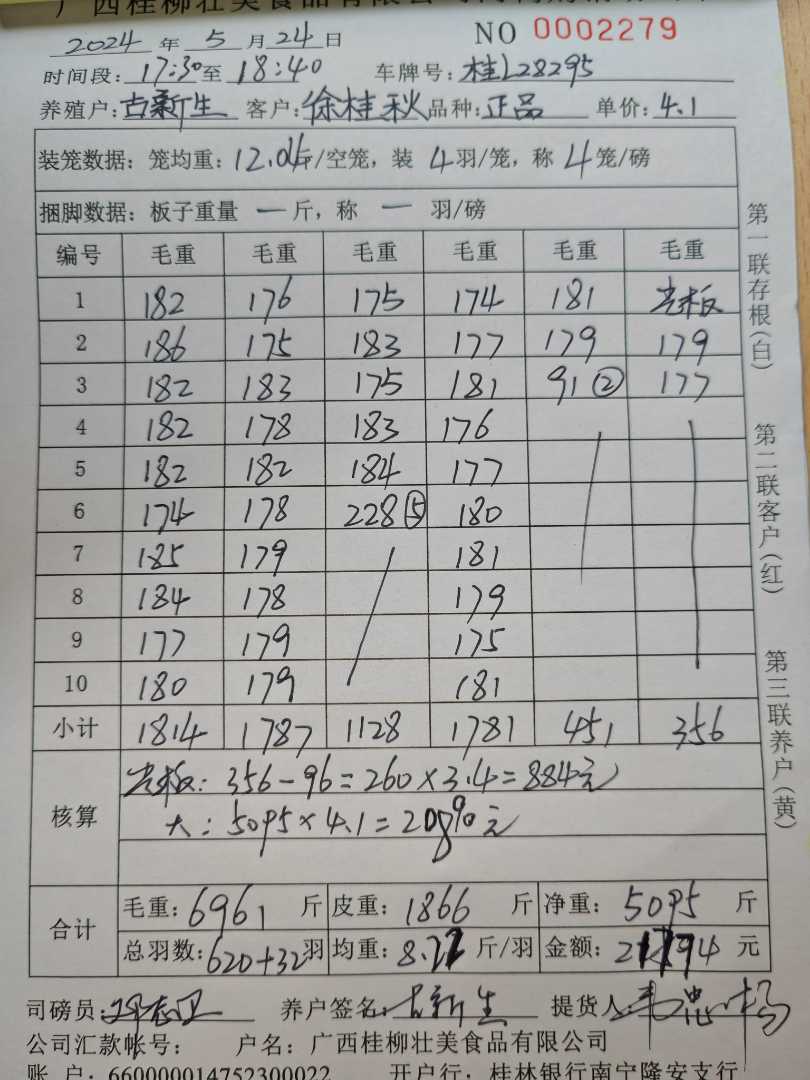 广西桂柳壮美食品有限公司
2024 年 5 月 24 日 NO 0002279
时间段: 17:30 至 18:40 车牌号: 桂L28295
养殖户: 古新生 客户: 徐桂秋 品种: 正品 单价: 4.1
装笼数据: 笼均重: 12.04斤/空笼, 装 4 羽/笼, 称 4 笼/磅
捆脚数据: 板子重量 一 斤, 称 一 羽/磅
编号 毛重 毛重 毛重 毛重 毛重 毛重
1 182 176 175 174 181 光板
2 186 175 183 177 179 179
3 182 183 175 181 91② 177
4 182 178 183 176
5 182 182 184 177
6 174 178 228⑤ 180
7 185 179 181
8 184 178 179
9 177 179 175
10 180 179 181
小计 1814 1787 1128 1781 451 356
核算 光板: 356-96=260×3.4=884元
大: 5095×4.1=20890元
合计 毛重: 6961 斤 皮重: 1866 斤 净重: 5095 斤
总羽数: 620+32 羽 均重: 8.22 斤/羽 金额: 21774 元
司磅员: 养户签名: 古新生 提货人:
公司汇款帐号: 户名: 广西桂柳壮美食品有限公司
账 户: 660000014752300022 开户行: 桂林银行南宁隆安支行
第一联存根(白)
第二联客户(红)
第三联养户(黄)